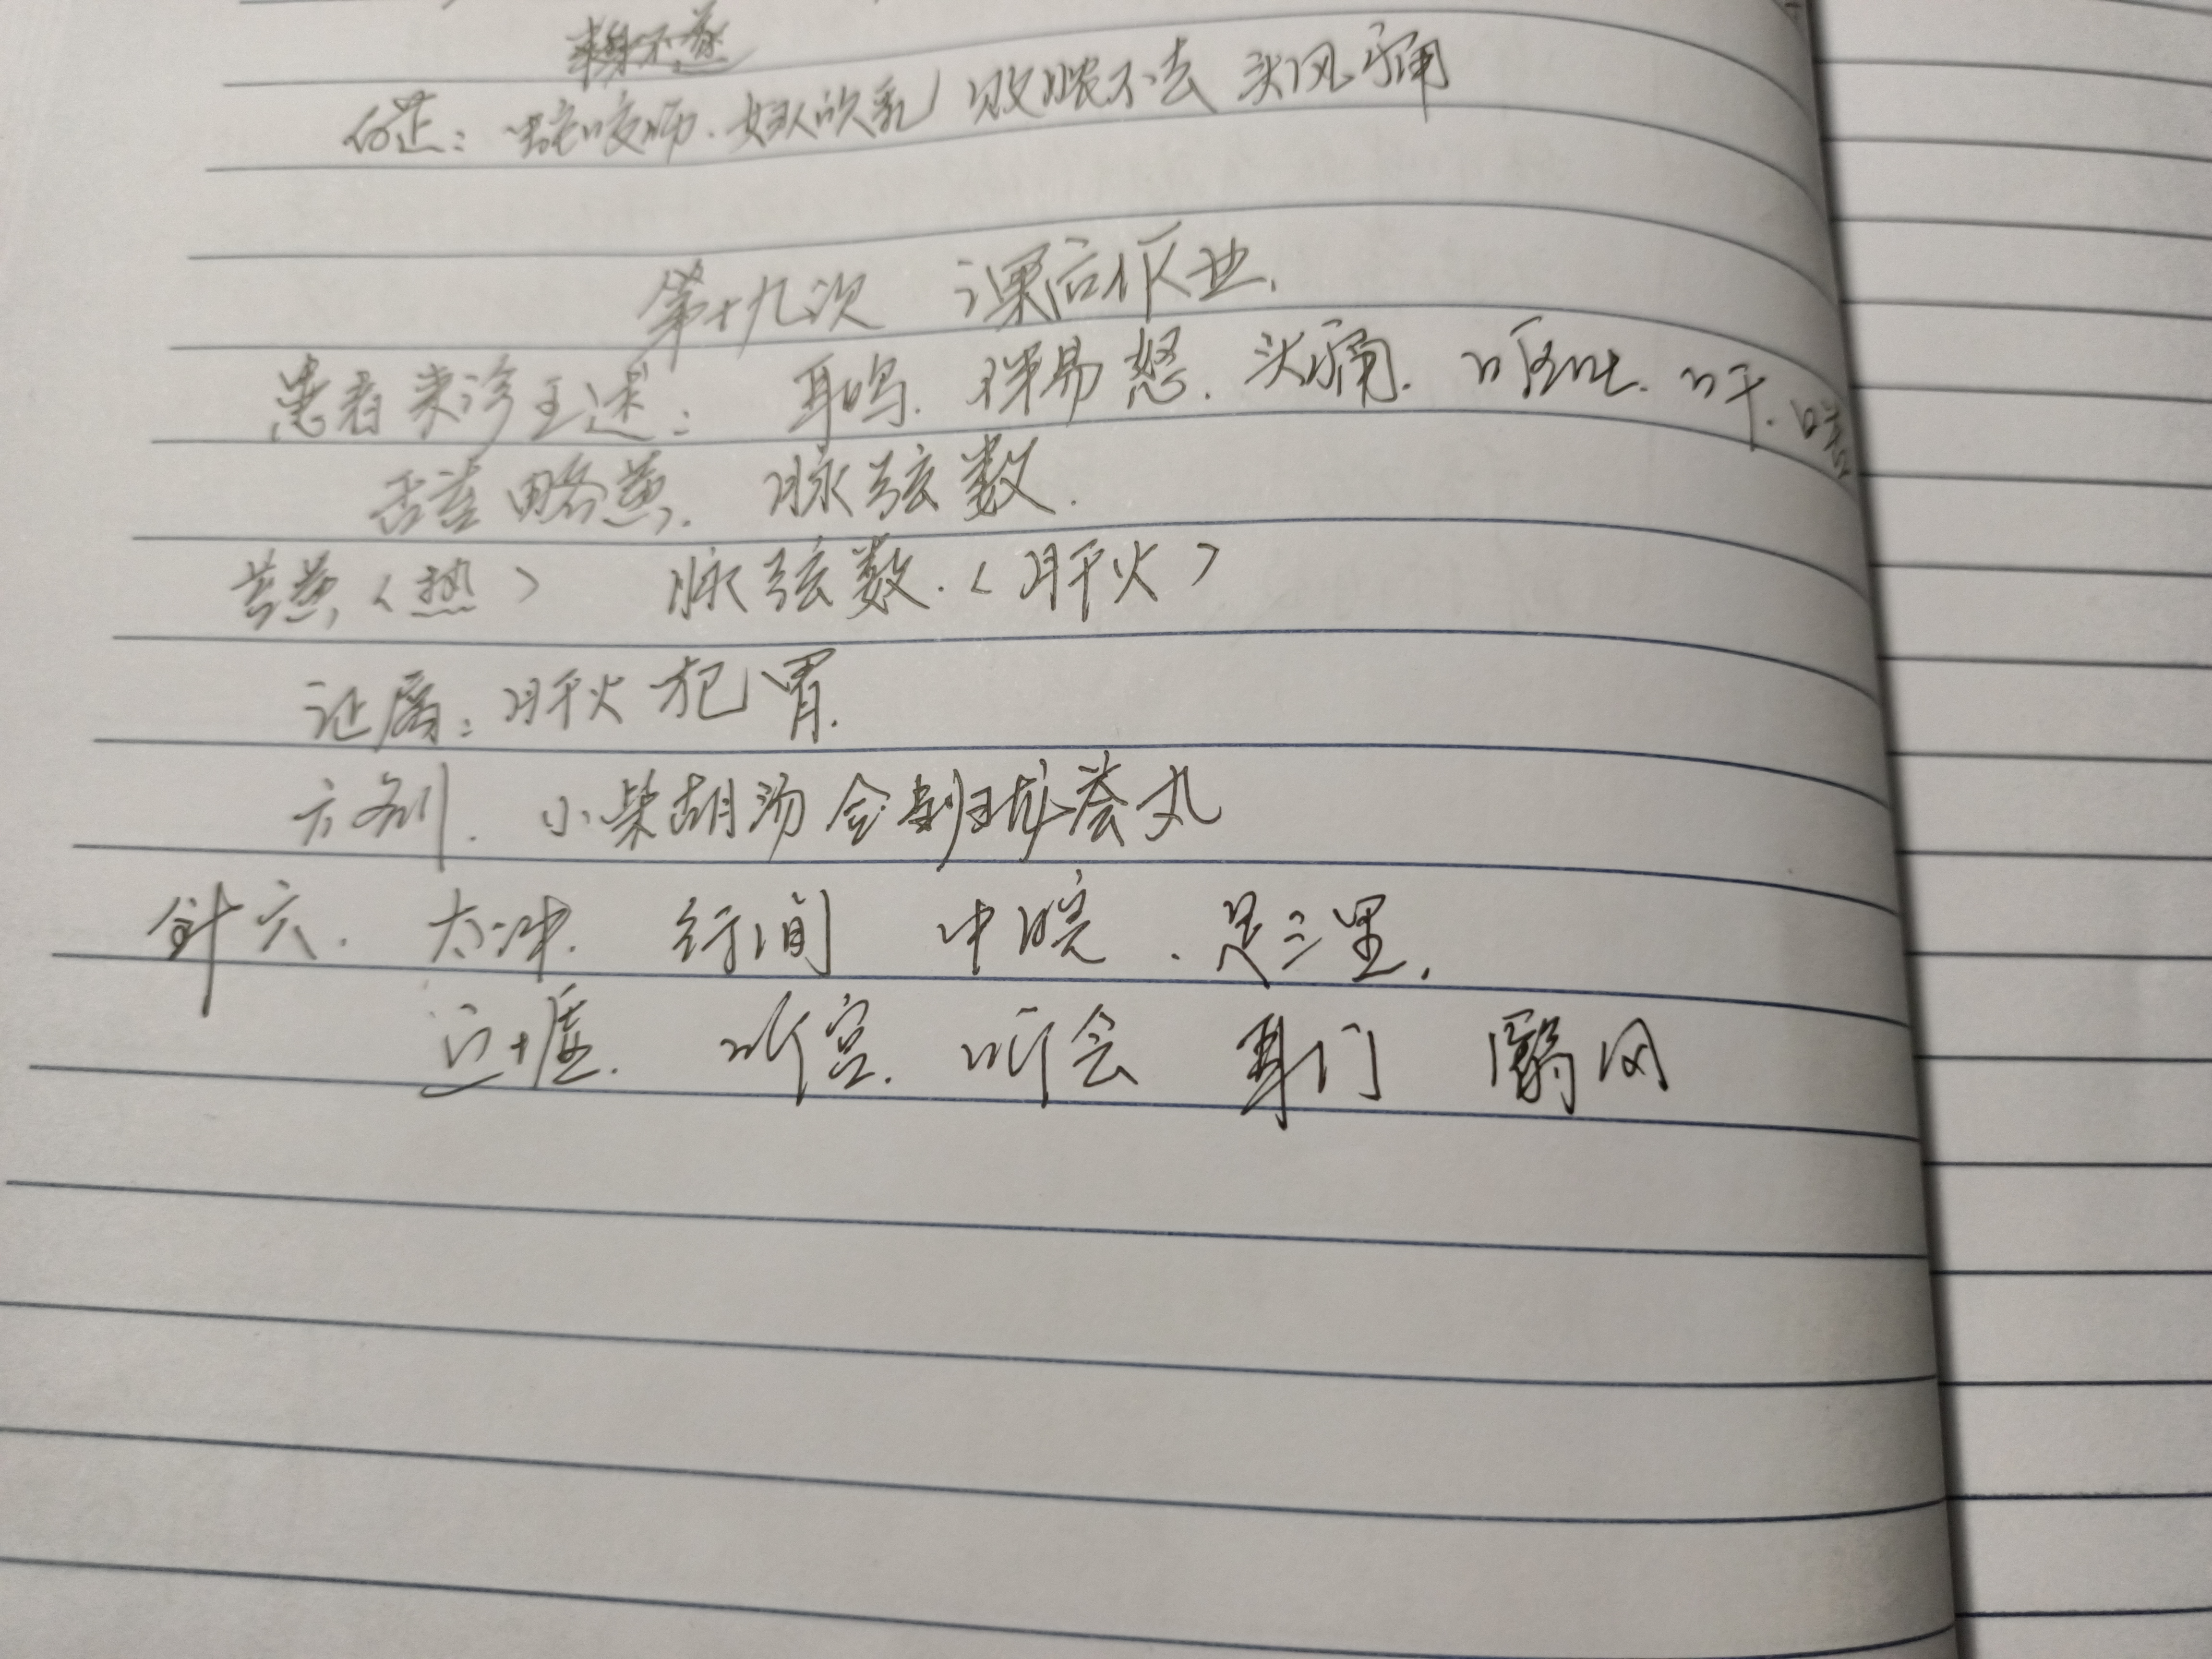 白芷：蛇咬疮．妇人吹乳 败脓不去 头风痛
第十九次 课后作业．
患者来诊主述：耳鸣．烦易怒．头痛．呕吐．口干．口苦
舌苔略黄．脉弦数．
苔黄〈热〉 脉弦数．〈肝火〉
证属：肝火犯胃．
方剂．小柴胡汤合当归龙荟丸
针穴．太冲．行间 中脘．足三里．
丘墟．听宫．听会 耳门 翳风